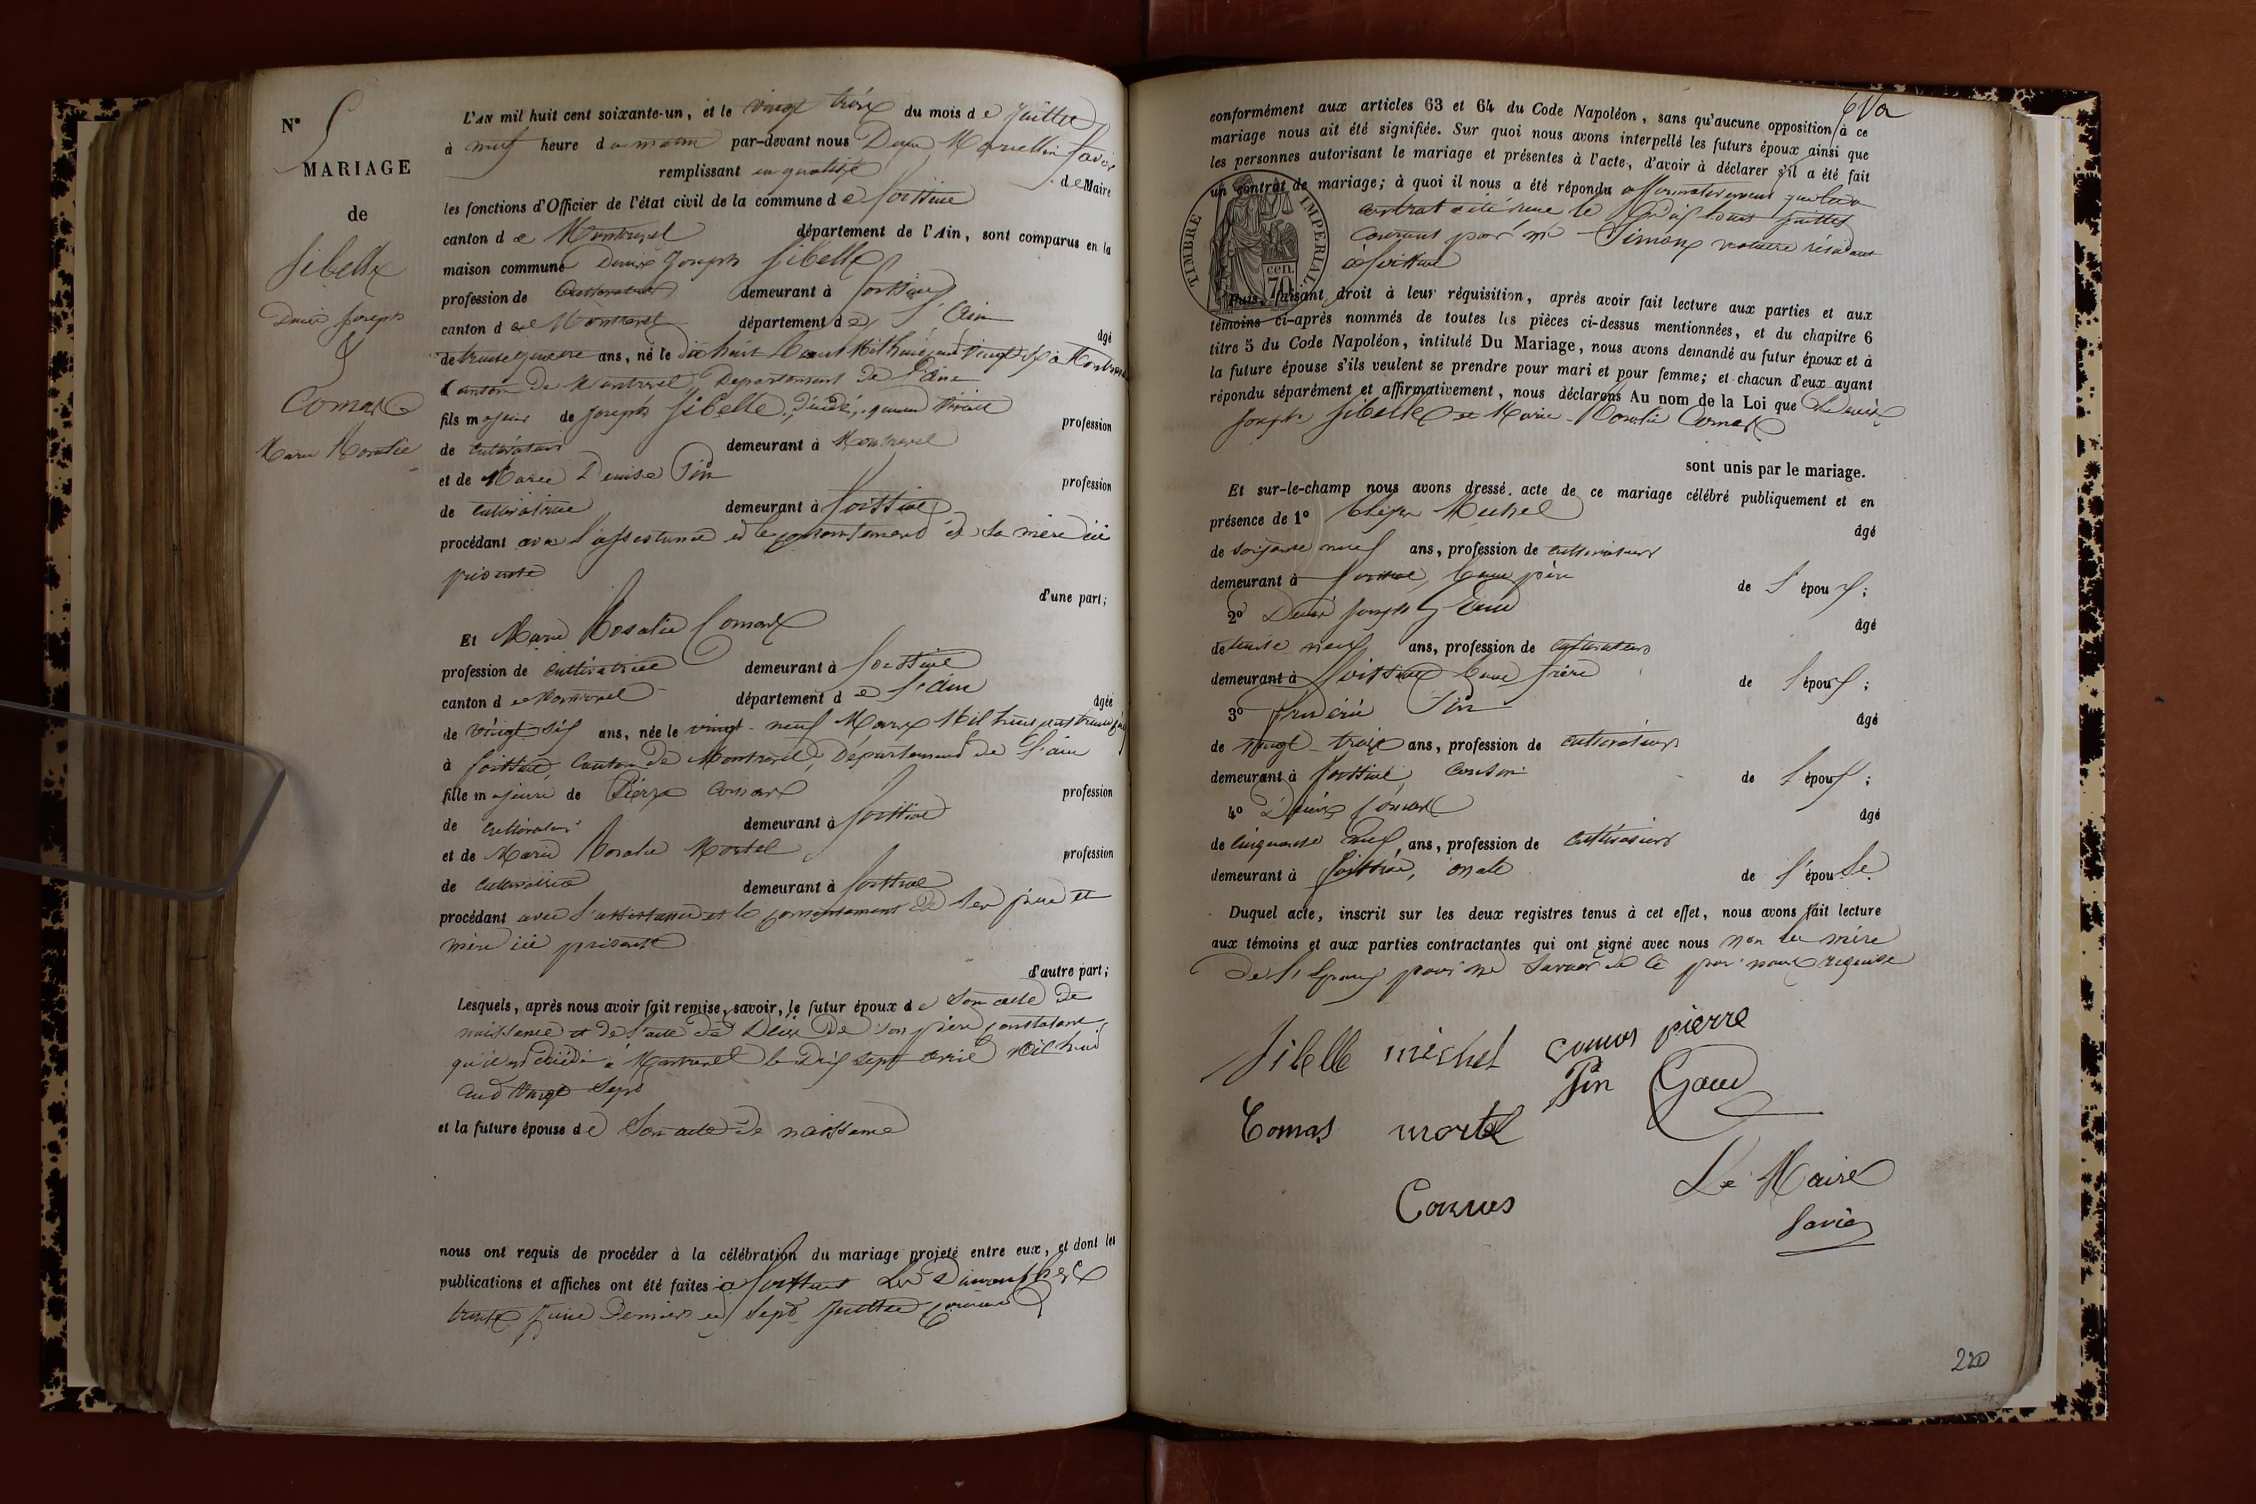 N° 5
MARIAGE
de
Sibelle
Denis Joseph
&
Comas
Marie Rosalie
L'AN mil huit cent soixante-un, et le vingt trois du mois de juillet
à neuf heure du matin par-devant nous Denis Marcellin Savoi
remplissant en qualité de Maire
les fonctions d'Officier de l'état civil de la commune de foissiat
canton de Montrevel département de l'Ain, sont comparus en la
maison commune Denis Joseph Sibelle
profession de Cultivateur demeurant à foissiat
canton de Montrevel département de l'Ain âgé
de trente quatre ans, né le dix huit Mil huit cent vingt à Montrevel
Canton De Montrevel Département De l'ain
fils majeur de Joseph Sibelle, décédé, quand vivait profession
de cultivateur demeurant à Montrevel
et de Marie Denise Pin profession
de cultivatrice demeurant à foissiat
procédant avec l'assistance et le consentement de sa mère ici
présente
d'une part;
Et Marie Rosalie Comas
profession de cultivatrice demeurant à foissiat
canton de Montrevel département de l'ain âgée
de vingt six ans, née le vingt-neuf Mars Mil huit cent trente
à foissiat, Canton de Montrevel, Département de l'ain
fille majeure de Pierre Comas profession
de cultivateur demeurant à foissiat
et de Marie Rosalie Mortel profession
de cultivatrice demeurant à foissiat
procédant avec l'assistance et le consentement de ses père et
mère ici présents
d'autre part;
Lesquels, après nous avoir fait remise, savoir, le futur époux de son acte de
naissance et de l'acte de Décès De son père constatant
qu'il est décédé à Montrevel le Dix sept avril Mil huit
cent vingt sept
et la future épouse de son acte de naissance
nous ont requis de procéder à la célébration du mariage projeté entre eux, et dont les
publications et affiches ont été faites à foissiat les Dimanches
trente juin Dernier et sept juillet courant
conformément aux articles 63 et 64 du Code Napoléon, sans qu'aucune opposition à ce
mariage nous ait été signifiée. Sur quoi nous avons interpellé les futurs époux ainsi que
les personnes autorisant le mariage et présentes à l'acte, d'avoir à déclarer s'il a été fait
un contrat de mariage; à quoi il nous a été répondu affirmativement que leur
contrat a été reçu le juillet
courant par me Simon notaire résidant
à foissiat
TIMBRE IMPERIAL
70 cen.
Puis, faisant droit à leur réquisition, après avoir fait lecture aux parties et aux
témoins ci-après nommés de toutes les pièces ci-dessus mentionnées, et du chapitre 6
titre 5 du Code Napoléon, intitulé Du Mariage, nous avons demandé au futur époux et à
la future épouse s'ils veulent se prendre pour mari et pour femme; et chacun d'eux ayant
répondu séparément et affirmativement, nous déclarons Au nom de la Loi que Denis
Joseph Sibelle et Marie Rosalie Comas
sont unis par le mariage.
Et sur-le-champ nous avons dressé acte de ce mariage célébré publiquement et en
présence de 1° Michel âgé
de soixante neuf ans, profession de cultivateur
demeurant à foissiat, beau père de l'époux;
2° Denis Joseph Gaud âgé
de trente neuf ans, profession de cultivateur
demeurant à foissiat beau frère de l'époux;
3° frédéric Pin âgé
de vingt-trois ans, profession de cultivateur
demeurant à foissiat, cousin de l'époux;
4° Denis Comas âgé
de cinquante neuf ans, profession de cultivateur
demeurant à foissiat, oncle de l'épouse
Duquel acte, inscrit sur les deux registres tenus à cet effet, nous avons fait lecture
aux témoins et aux parties contractantes qui ont signé avec nous non la mère
De l'époux pour ne savoir de ce par nous requise
Sibelle michel comas pierre
Pin Gaud
Comas mortel
Comas
Le Maire
Savoi
220